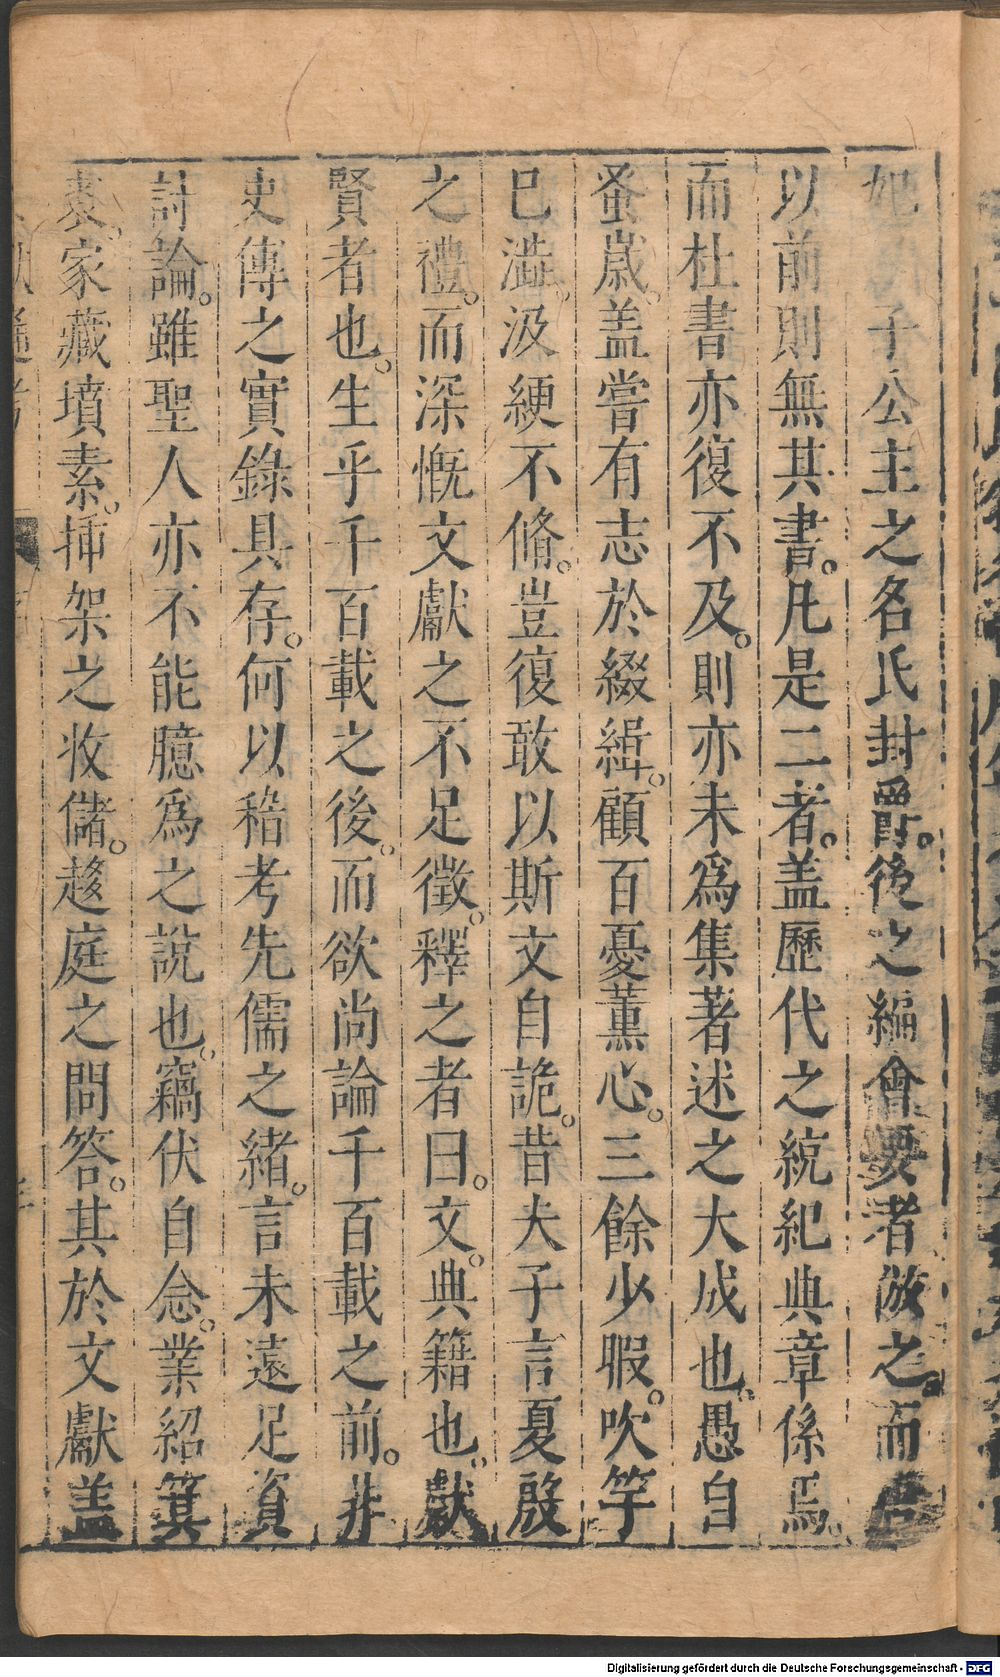 妃　子公主之名氏封爵。後之編會要者倣之。而唐
以前則無其書。凡是二者。盖歷代之統紀典章係焉。
而杜書亦復不及。則亦未爲集著述之大成也。愚自
蚤嵗。盖嘗有志於綴緝。顧百憂薰心。三餘少暇。吹竽
已澁。汲綆不脩。豈復敢以斯文自詭。昔夫子言夏殷
之禮。而深慨文獻之不足徵。釋之者曰。文。典籍也。獻
賢者也。生乎千百載之後。而欲尚論千百載之前。非
史傳之實錄具存。何以稽考先儒之緒。言未遠足資
討論。雖聖人亦不能臆爲之說也。竊伏自念。業紹箕
裘。家藏墳素。揷架之收儲。趍庭之問答。其於文獻盖
Digitalisierung gefördert durch die Deutsche Forschungsgemeinschaft - DFG